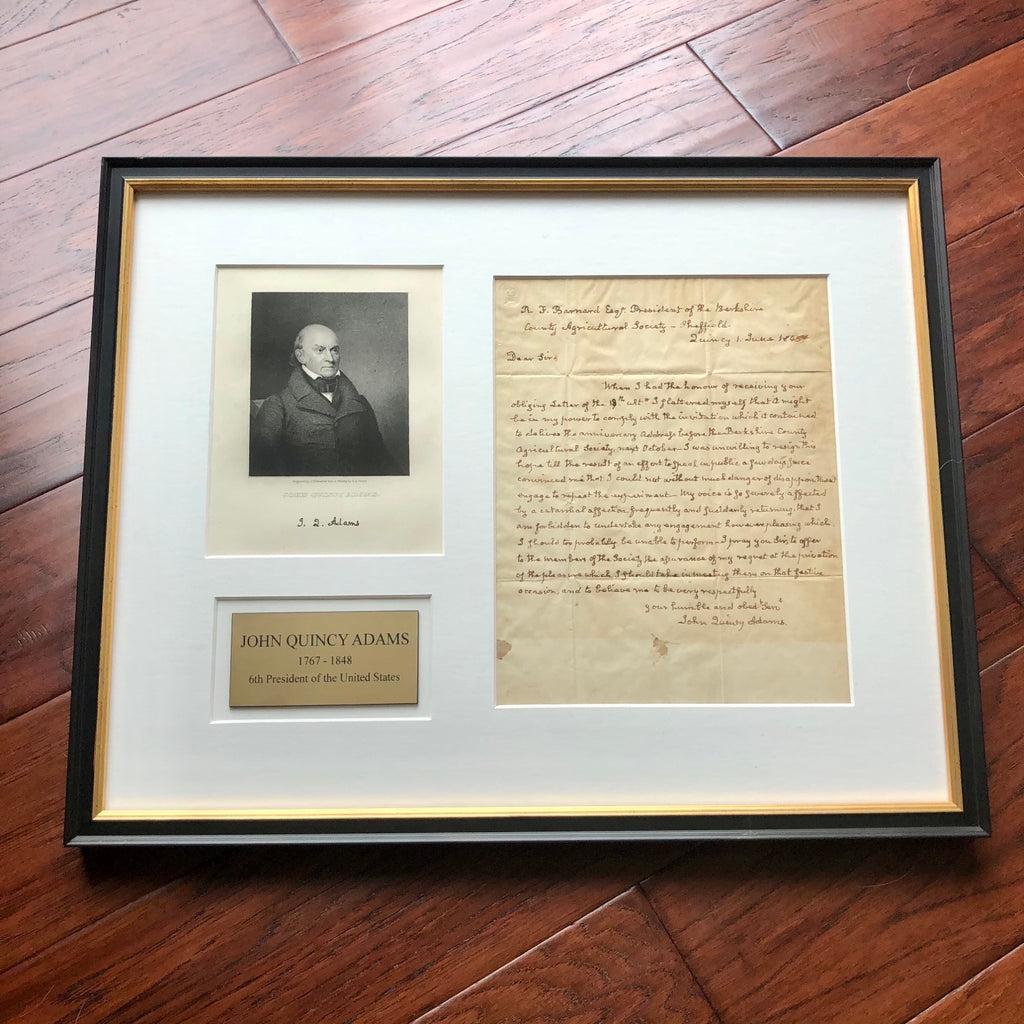 JOHN QUINCY ADAMS.
J. Q. Adams
JOHN QUINCY ADAMS
1767 - 1848
6th President of the United States
R. F. Barnard Esqr. President of the Berkshire
County Agricultural Society - Sheffield.
Quincy 1. June
Dear Sir.
When I had the honour of receiving your
obliging Letter of the ulto. I flattered myself that it might
be in my power to comply with the invitation which it contained
to deliver the anniversary Address before the Berkshire County
Agricultural Society, next October - I was unwilling to resign this
hope till the result of an effort to speak in public a few days since
convinced me that I could not without much danger of disappointment
engage to repeat the experiment - My voice is so severely affected
by a catarrhal affection, frequently and suddenly returning, that I
am forbidden to undertake any engagement however pleasing which
I should too probably be unable to perform - I pray you Sir, to offer
to the members of the Society, the assurance of my regret at the privation
of the pleasure which I should take in meeting them on that festive
occasion, and to believe me to be very respectfully
your humble and obedt. Servt.
John Quincy Adams.